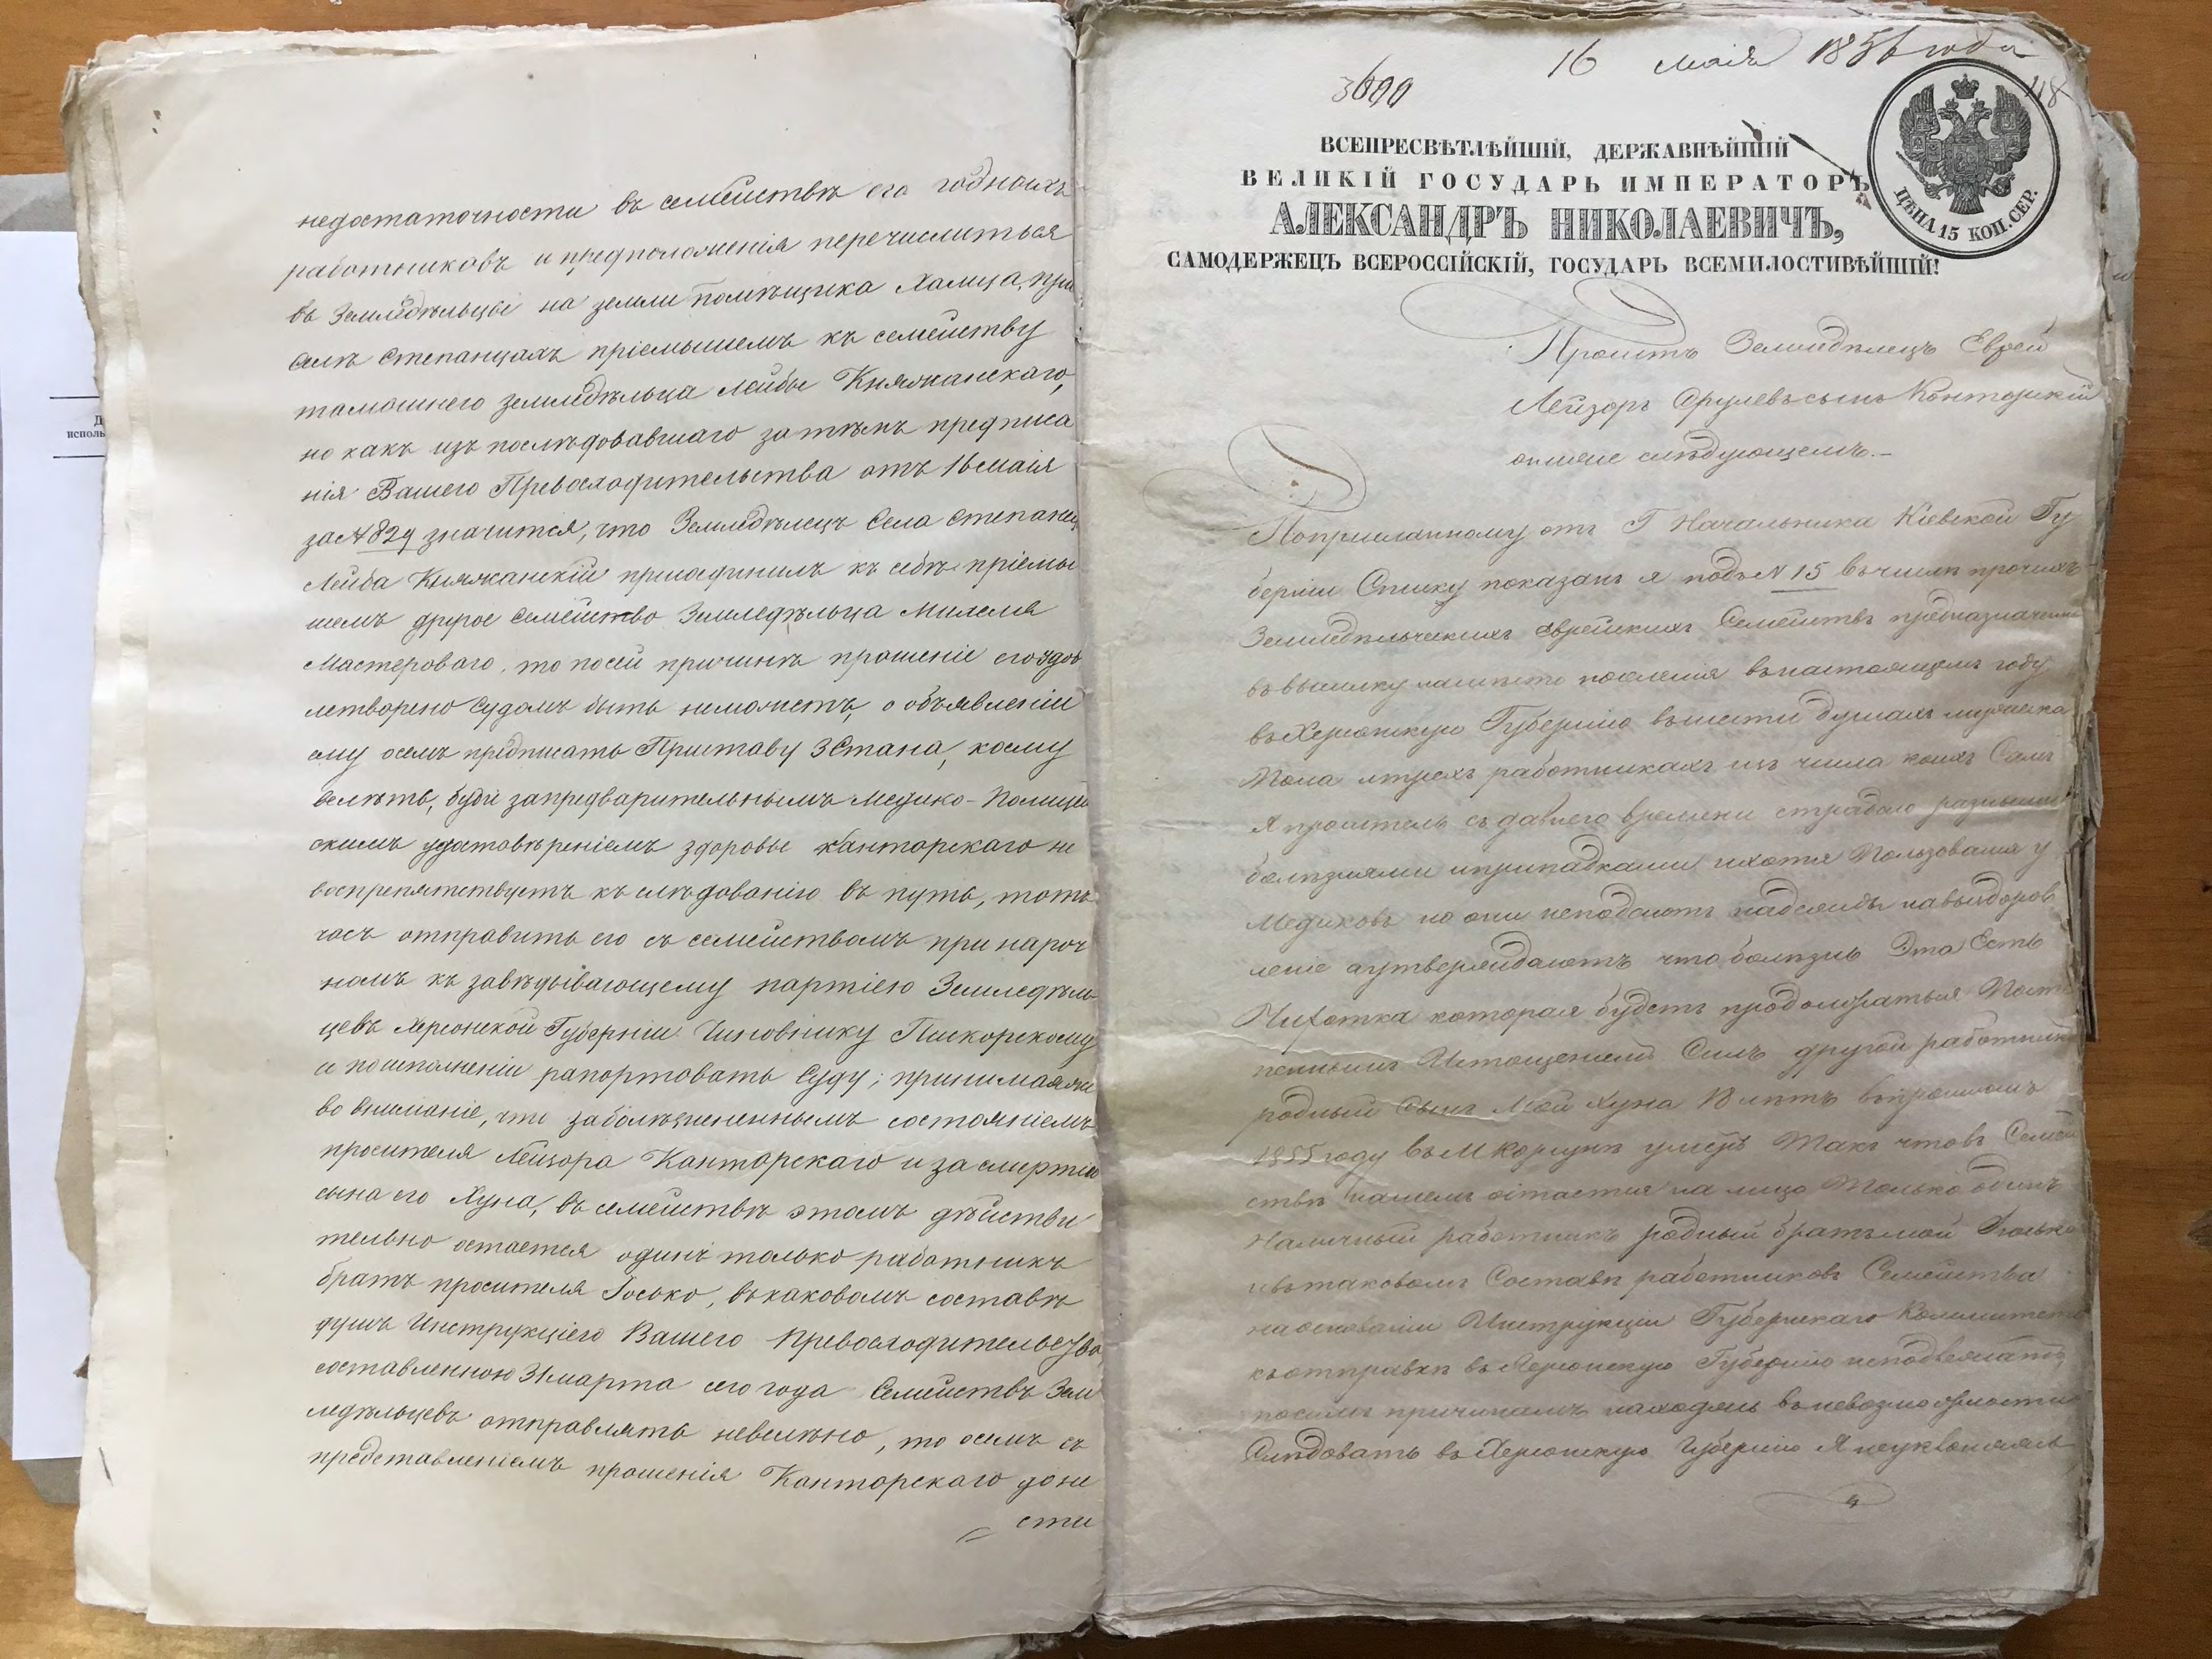 недостаточности въ семействѣ его годныхъ
работниковъ и предположенія перечислиться
въ Земледѣльцы на земли помѣщика Халица, при
селѣ Степанцахъ пріемышемъ къ семейству
тамошнего земледѣльца Лейбы Княжанскаго,
но какъ изъ послѣдовавшаго за тѣмъ предписа
нія Вашего Превосходительства отъ 16 маія
за № 829 значится, что Земледѣлецъ Села Степанец
Лейба Княжанскій присоединилъ къ себѣ пріемы
шемъ другое семейство Земледѣльца
Мастероваго, то по сей причинѣ прошеніе его удов
летворено Судомъ быть неможетъ, о объявленіи
ему осемъ предписать Приставу 3 Стана, коему
велѣть, буде запредварительнымъ Медико-Полицей
скимъ удостовѣреніемъ здоровье Канторскаго не
воспрепятствуетъ къ слѣдованію въ путь, тотъ
часъ отправить его съ семействомъ при нароч
номъ къ завѣдывающему партіею Земледѣль
цевъ Херсонской Губерніи Чиновнику Пискорскому
и по исполненіи рапортовать Суду; принимая же
во вниманіе, что заболѣзненнымъ состояніемъ
просителя Лейзора Канторскаго и за смертію
сына его Хуна, въ семействѣ этомъ дѣйстви
тельно остается одинъ только работникъ
братъ просителя Іосько, въ каковомъ составѣ
душъ Инструкціею Вашего Превосходительства,
составленною 31 марта сего года Семействъ Зем
ледѣльцевъ отправлять невелѣно, то осемъ съ
представленіемъ прошенія Канторскаго доне
сти
16 маія 1856 года
3699
118
ВСЕПРЕСВѢТЛѢЙШІЙ, ДЕРЖАВНѢЙШІЙ
ВЕЛИКІЙ ГОСУДАРЬ ИМПЕРАТОРЪ
АЛЕКСАНДРЪ НИКОЛАЕВИЧЪ,
САМОДЕРЖЕЦЪ ВСЕРОССІЙСКІЙ, ГОСУДАРЬ ВСЕМИЛОСТИВѢЙШІЙ!
ЦѢНА 15 КОП. СЕР.
Проситъ Земледѣлецъ Еврей
Лейзоръ Срулевъ сынъ Конторскій
слѣдующемъ.–
Поприсланному отъ Г Начальника Кіевской Гу
берніи Списку показанъ я подъ № 15 въ числѣ прочихъ
Земледѣльческихъ Еврейскихъ Семействъ предназначен
въ высылку поселенія въ настоящемъ году
въ Херсонскую Губернію въ шести душахъ мужеска
Пола и трехъ работникахъ изъ числа коихъ Самъ
Я проситель съ давнего времени стражду разными
болѣзнями и припадками и хотя Пользовался у
Медиковъ но они неподаютъ надежды на выздоров
леніе а утверждаютъ что болѣзнь Эта Есть
Чихотка которая будетъ продолжаться Посте
пеннымъ Истощеніемъ Силъ другой работникъ
родный Сынъ Мой Хуна 18 лѣтъ въ прошломъ
1855 году въ М Корсунѣ умеръ Такъ что въ Семей
ствѣ нашемъ остается на лицо Только одинъ
Наличный работникъ родный братъ мой Іосько
и въ таковомъ Составѣ работниковъ Семейства
на основаніи Инструкціи Губернскаго Коммитета
къ отправкѣ въ Херсонскую Губернію неподлежатъ,
по симъ причинамъ находясь въ невозможности
Слѣдовать въ Херсонскую Губернію Я неуклоняясь